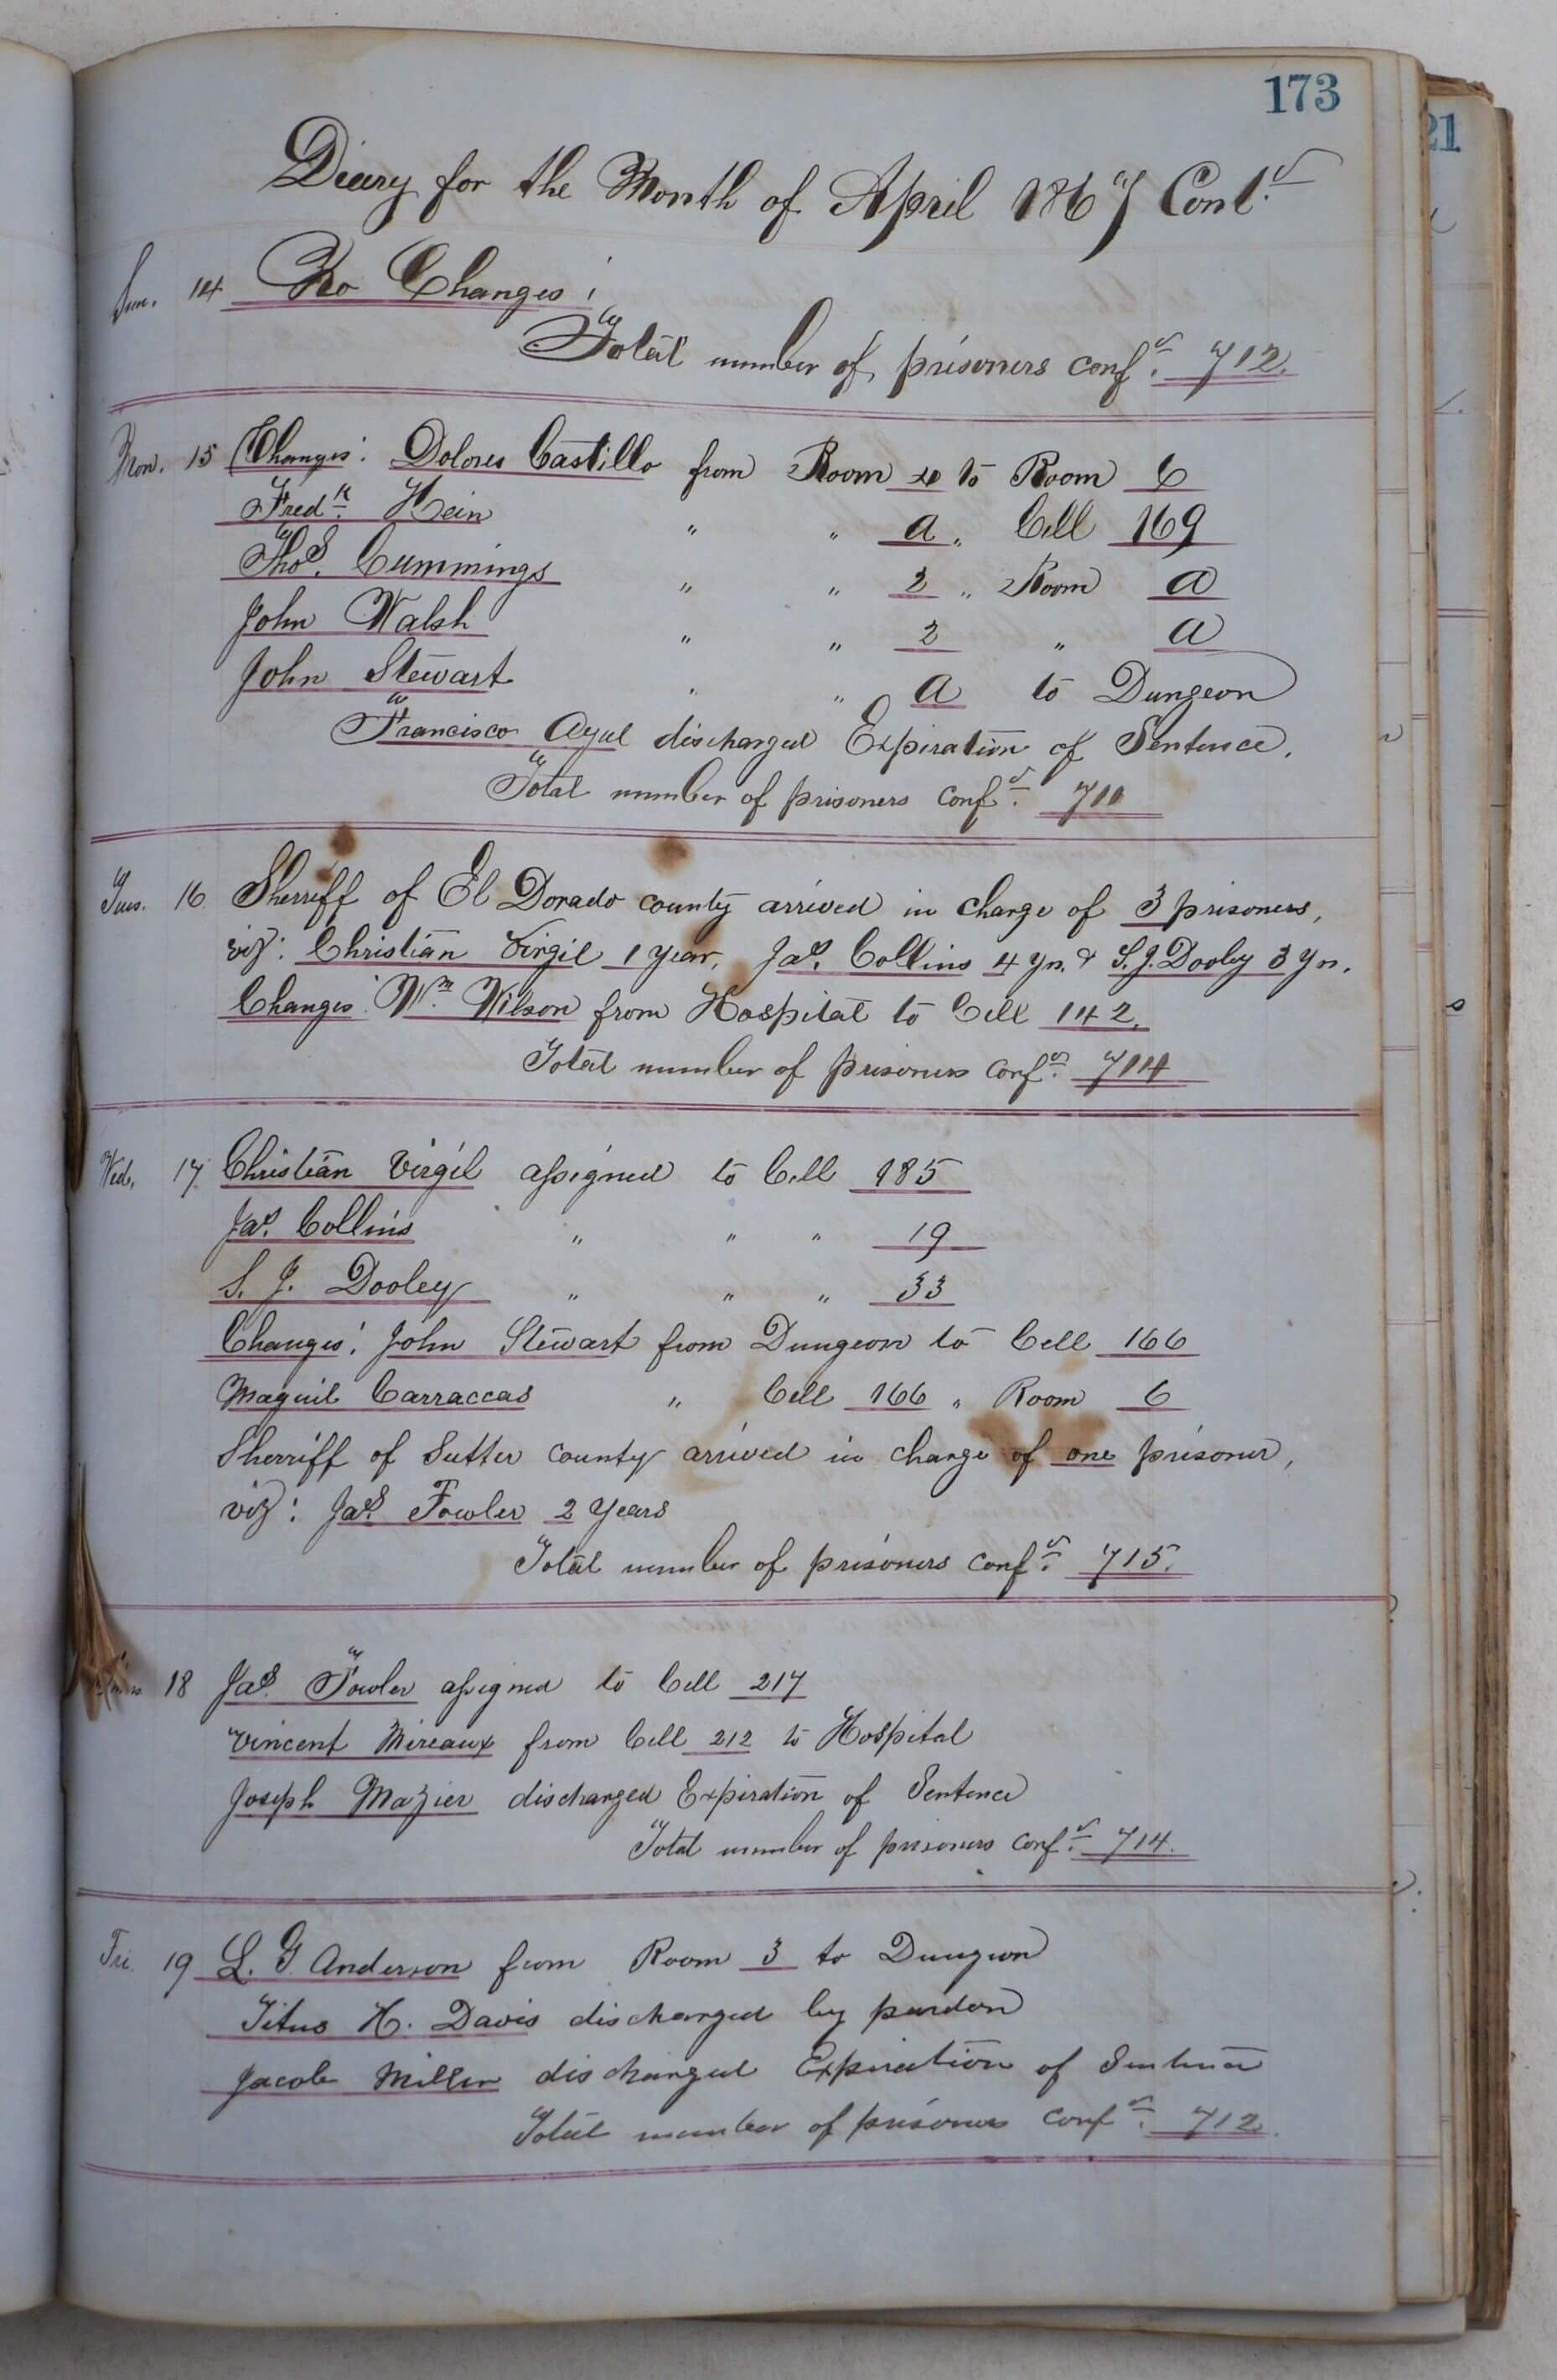 173
21
Diary for the Month of April 1867 Cont.d
Sun. 14 No Changes;
Total number of prisoners conf.d 712.
Mon. 15 Changes: Dolores Castillo from Room to Room 6
Fred.k Hein " " a " Cell 169
Tho.s Cummings " " 2 " Room a
John Walsh " " 2 " a
John Stewart " " a to Dungeon
Francisco Ayul discharged Expiration of Sentence.
Total number of prisoners conf.d 711
Tues. 16 Sherriff of El Dorado county arrived in charge of 3 prisoners,
viz: Christian Virgil 1 year, Jas. Collins 4 yrs. & S. J. Dooley 3 yrs.
Changes: W.m Wilson from Hospital to Cell 142.
Total number of prisoners conf.d 714
Wed. 17 Christian Virgil assigned to Cell 185
Jas. Collins " " " 19
S. J. Dooley " " " 33
Changes: John Stewart from Dungeon to Cell 166
Maguil Carraccas " Cell 166 " Room 6
Sherriff of Sutter county arrived in charge of one prisoner,
viz: Jas. Fowler 2 Years
Total number of prisoners conf.d 715.
18 Jas. Fowler assigned to Cell 217
Vincent Mireaux from Cell 212 to Hospital
Joseph Mazier discharged Expiration of Sentence
Total number of prisoners conf.d 714.
Fri. 19 L. G. Anderson from Room 3 to Dungeon
Titus H. Davis discharged by pardon
Jacob Miller discharged Expiration of Sentence
Total number of prisoners conf.d 712.